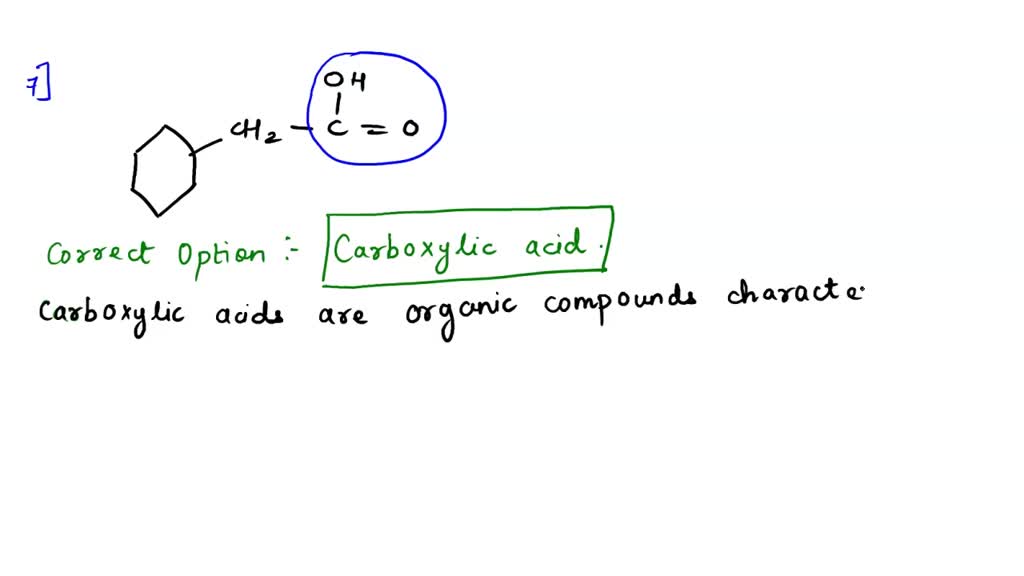 7]
OH
CH2 - C = O
Correct Option :- Carboxylic acid.
Carboxylic acids are organic compounds characte